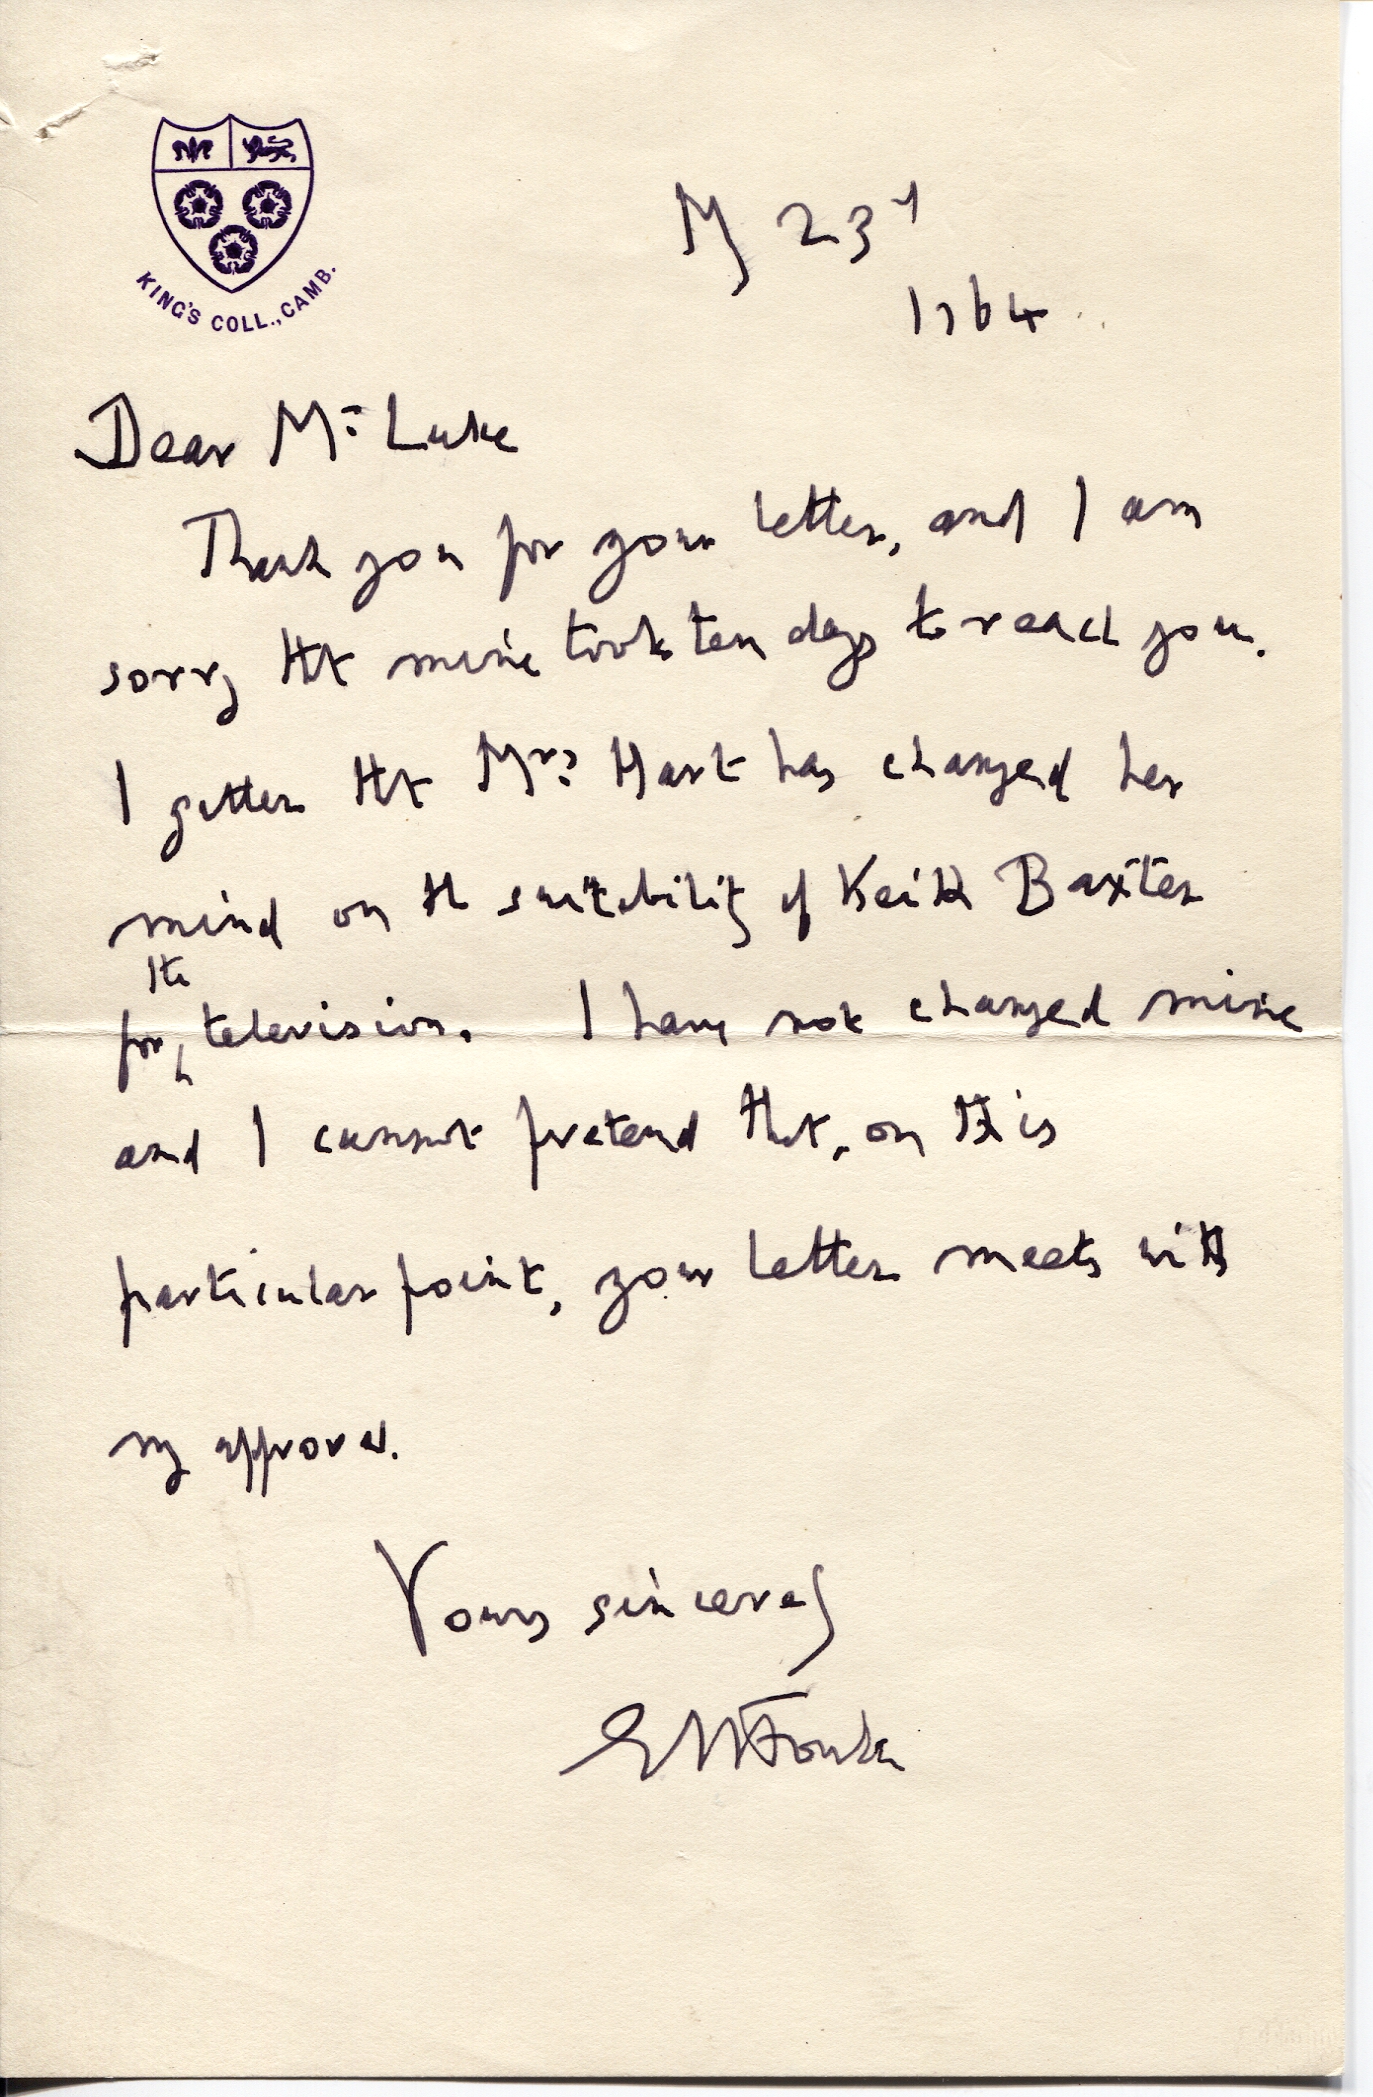 KING'S COLL., CAMB.
My 23d
1964
Dear Mr. Luke
Thank you for your letter, and I am
sorry tht mine took ten days to reach you.
I gather tht Mrs. Hart has changed her
mind on th suitability of Keith Baxter
for the television. I have not changed mine
and I cannot pretend that, on this
particular point, your letter meets with
my approval.
Yours sincerely
EMForster